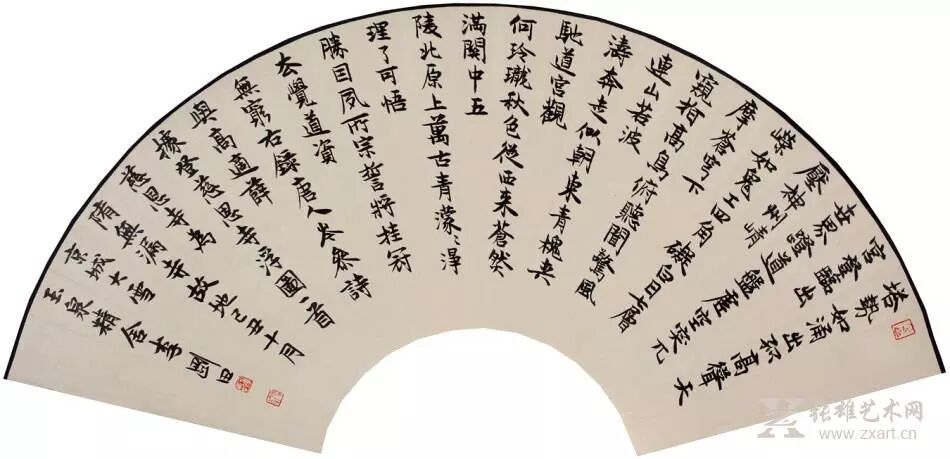 塔勢如涌出孤高聳天
宮登臨出
世界蹬道盤虛空突兀
壓神州崝
嶸如鬼工四角礙白日七層
摩蒼穹下
窺指高鳥俯聽聞驚風
連山若波
濤奔走似朝東青槐夾
馳道宮觀
何玲瓏秋色從西来蒼然
滿關中五
陵北原上萬古青濛〻淨
理了可悟
勝因夙所宗誓將挂冠
去覺道資
無窮右錄唐人岑參詩
與高適薛
據登慈恩寺浮圖一首
慈恩寺為
隋無漏寺故地己丑十月
京城大雪
玉泉精舍李剛田
张雄艺术网
www.zxart.cn